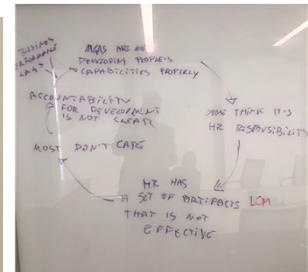 BUSINESS
PERFORMANCE
LAGS
MGRS ARE NOT
DEVELOPING PEOPLE'S
CAPABILITIES PROPERLY
ACCOUNTABILITY
FOR DEVELOPMENT
IS NOT CLEAR
SOME THINK IT'S
HR RESPONSIBILITY
MOST DON'T CARE
HR HAS
A SET OF ARTIFACTS LCM
THAT IS NOT
EFFECTIVE